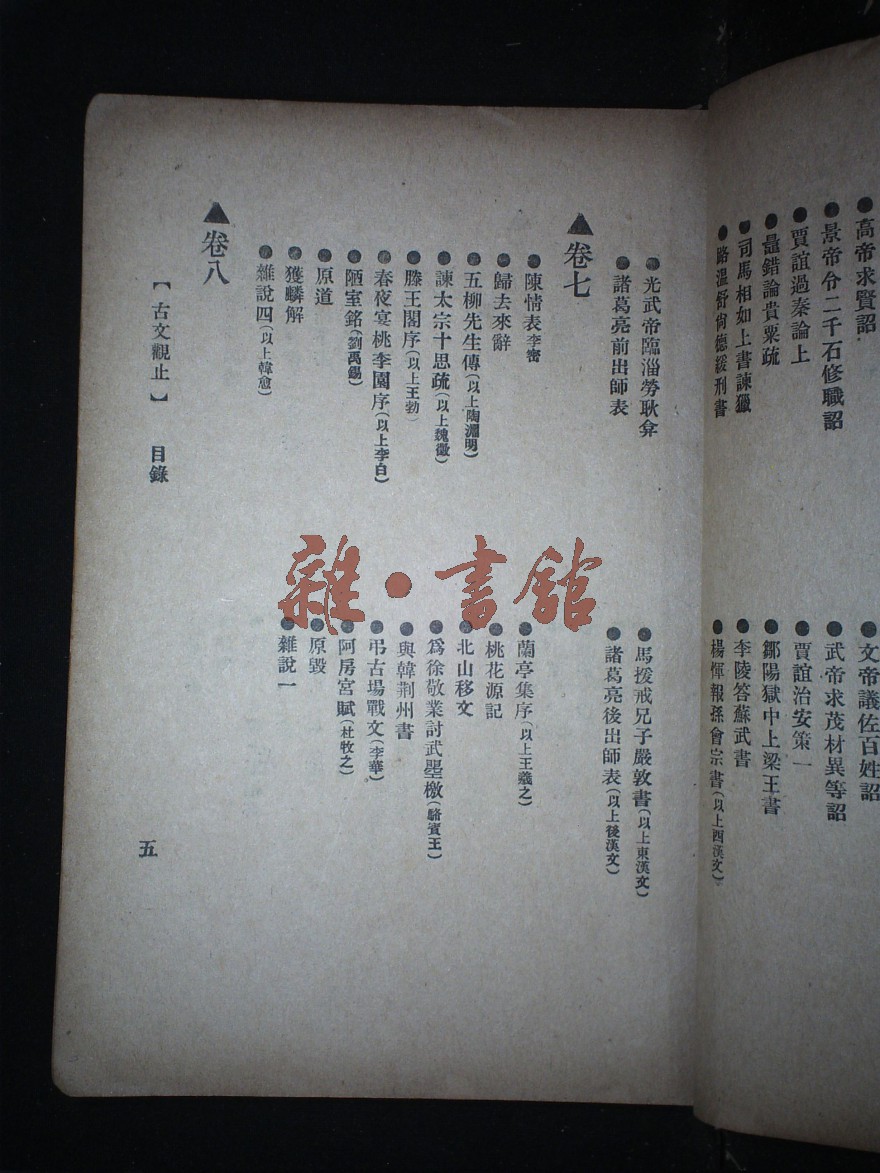 ●高帝求賢詔
●文帝議佐百姓詔
●景帝令二千石修職詔
●武帝求茂材異等詔
●賈誼過秦論上
●賈誼治安策一
●鼂錯論貴粟疏
●鄒陽獄中上梁王書
●司馬相如上書諫獵
●李陵答蘇武書
●路溫舒尙德緩刑書
●楊惲報孫會宗書(以上西漢文)
●光武帝臨淄勞耿弇
●馬援戒兄子嚴敦書(以上東漢文)
●諸葛亮前出師表
●諸葛亮後出師表(以上後漢文)
▲卷七
●陳情表李密
●蘭亭集序(以上王羲之)
●歸去來辭
●桃花源記
●五柳先生傳(以上陶淵明)
●北山移文
●諫太宗十思疏(以上魏徵)
●爲徐敬業討武曌檄(駱賓王)
●滕王閣序(以上王勃)
●與韓荆州書
●春夜宴桃李園序(以上李白)
●弔古場戰文(李華)
●陋室銘(劉禹錫)
●阿房宮賦(杜牧之)
●原道
●原毀
●獲麟解
●雜說一
●雜說四(以上韓愈)
▲卷八
【古文觀止】 目錄
五
雜·書館